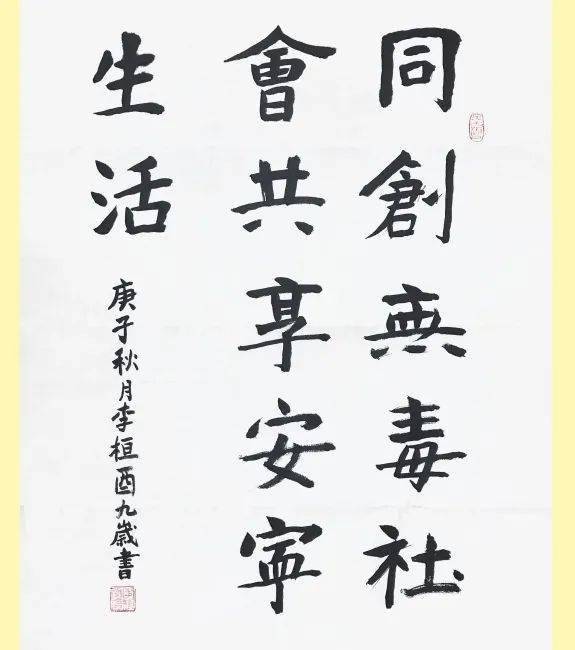 同創無毒社
會共享安寧
生活
庚子秋月李桓酉九歲書